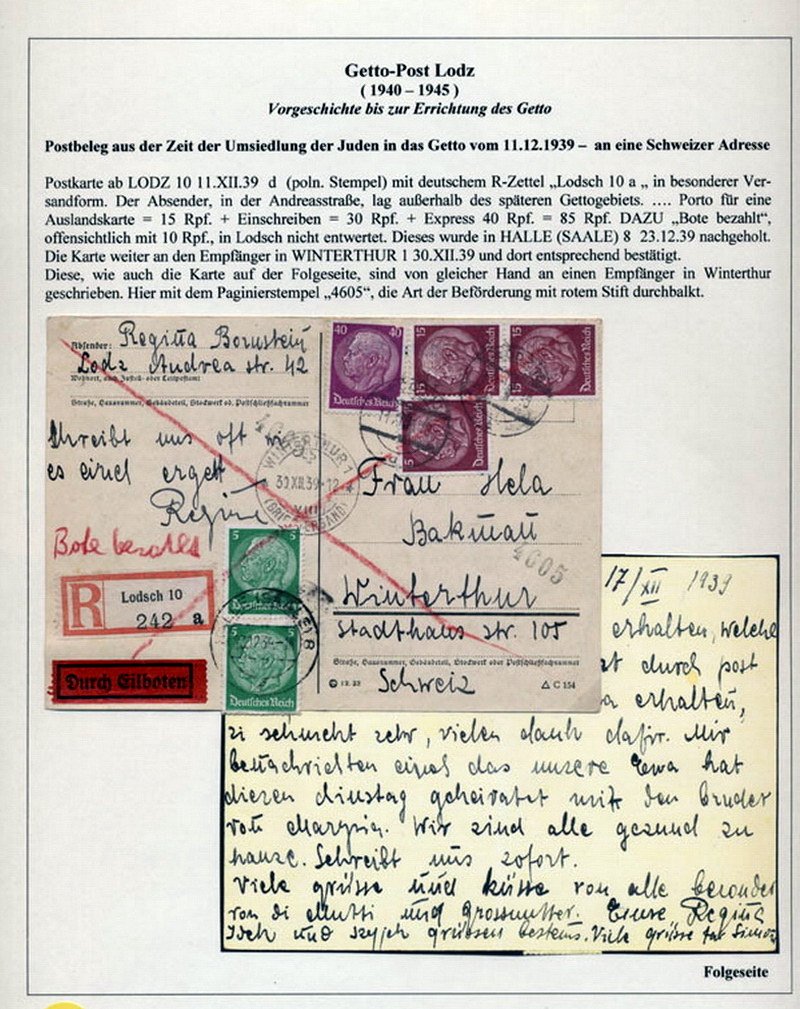 Getto-Post Lodz
( 1940 – 1945 )
Vorgeschichte bis zur Errichtung des Getto
Postbeleg aus der Zeit der Umsiedlung der Juden in das Getto vom 11.12.1939 – an eine Schweizer Adresse
Postkarte ab LODZ 10 11.XII.39 d (poln. Stempel) mit deutschem R-Zettel „Lodsch 10 a „ in besonderer Ver-
sandform. Der Absender, in der Andreasstraße, lag außerhalb des späteren Gettogebiets. …. Porto für eine
Auslandskarte = 15 Rpf. + Einschreiben = 30 Rpf. + Express 40 Rpf. = 85 Rpf. DAZU „Bote bezahlt“,
offensichtlich mit 10 Rpf., in Lodsch nicht entwertet. Dieses wurde in HALLE (SAALE) 8 23.12.39 nachgeholt.
Die Karte weiter an den Empfänger in WINTERTHUR 1 30.XII.39 und dort entsprechend bestätigt.
Diese, wie auch die Karte auf der Folgeseite, sind von gleicher Hand an einen Empfänger in Winterthur
geschrieben. Hier mit dem Paginierstempel „4605“, die Art der Beförderung mit rotem Stift durchbalkt.
Absender: Regina Bornstein
Lodz Andrea str. 42
Wohnort, auch Zustell- oder Leitpostamt
Straße, Hausnummer, Gebäudeteil, Stockwerk od. Postschließfachnummer
40 40
Deutsches Reich
15
Deutsches Reich
15
Deutsches Reich
Deutsches Reich
Schreibt uns oft wie
es euch ergeht
Regina
WINTERTHUR 1
30.XII.39-12
(BRIEFVERSAND)
Frau Hela
Bakman
4605
Winterthur
Stadthaus str. 105
Straße, Hausnummer, Gebäudeteil, Stockwerk oder Postschließfachnummer
Schweiz
C 154
Bote bezahlt
R
Lodsch 10
242 a
Durch Eilboten
5 5
Deutsches Reich
5 5
Deutsches Reich
17/XII 1939
erhalten, welche
durch post
erhalten,
schmeckt sehr, vielen dank dafir. Mir
benachrichten euch das unsere Ewa hat
diesen dinstag geheiratet mit den bruder
von Wir sind alle gesund zu
hause. Schreibt uns sofort.
Viele grüsse und küsse von alle besonder
von di Mutti und Grossmutter. Eure Regina
und grüssen bestens. Viele grüsse
Folgeseite